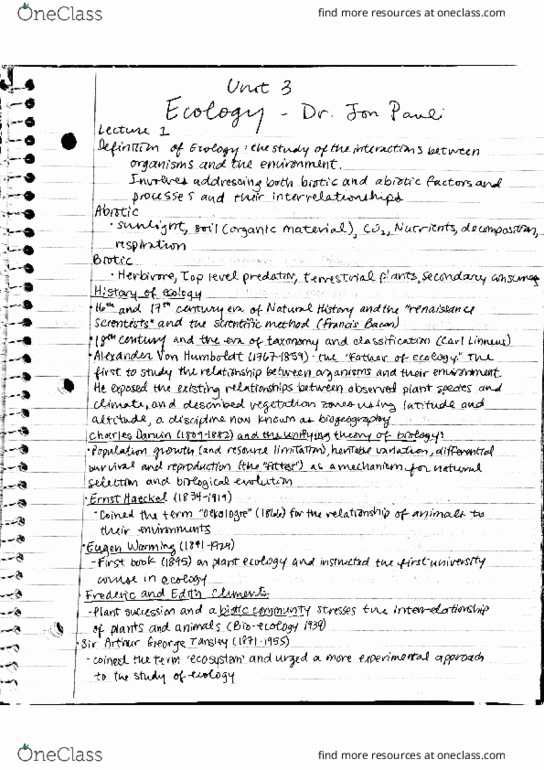 OneClass
find more resources at oneclass.com
Unit 3
Ecology - Dr. Jon Pauli
Lecture 1
Definition of Ecology: the study of the interactions between
organisms and the environment.
Involves addressing both biotic and abiotic factors and
processes and their interrelationships
Abiotic
• sunlight, soil (organic material), CO₂, Nutrients, decomposition,
respiration
Biotic
• Herbivore, Top level predator, terrestrial plants, secondary consumer
History of ecology
• 16th and 17th century era of Natural History and the "renaissance
Scientists" and the scientific method (Francis Bacon)
• 18th century and the era of taxonomy and classification (Carl Linneus)
• Alexander Von Humboldt (1767-1859): the "Father of ecology." The
first to study the relationship between organisms and their environment.
He exposed the existing relationships between observed plant species and
climate, and described vegetation zones using latitude and
altitude, a discipline now known as biogeography
Charles Darwin (1809-1882) and the unifying theory of biology:
• Population growth (and resource limitation), heritable variation, differential
survival and reproduction (the "fitter") as a mechanism for natural
selection and biological evolution
• Ernst Haeckel (1834-1919)
- Coined the term "oekologie" (1866) for the relationship of animals to
their environments
• Eugen Warming (1841-1924)
- First book (1895) on plant ecology and instructed the first university
course in ecology
Frederic and Edith Clements
- Plant sucession and a biotic community stresses the inter-relationship
of plants and animals (Bio-ecology 1939)
• Sir Arthur George Tansley (1871-1955)
- coined the term 'ecosystem' and urged a more experimental approach
to the study of ecology
OneClass
find more resources at oneclass.com